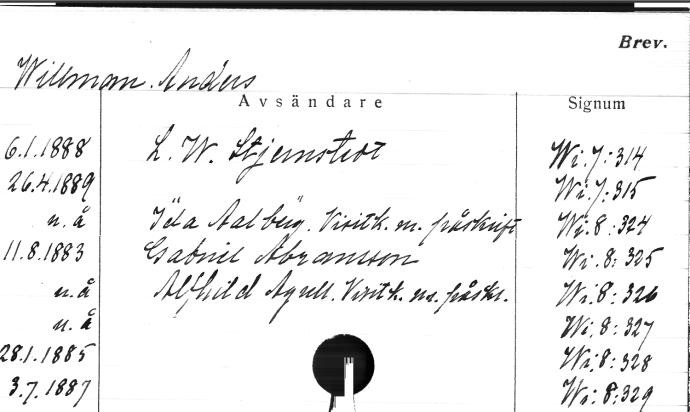 Brev.
Willman. Anders
Avsändare Signum
6.1.1888 L. W. Stjernstedt Wi.7:314
26.4.1889 Wi.7:315
u. å Ida Aalberg. Visitk. m. påskrift Wi.8:324
11.8.1883 Gabriel Abramson Wi.8:325
u. å Alfhild Agrell. Visitk. m. påskr. Wi.8:326
u. å Wi.8:327
28.1.1885 Wi.8:328
3.7.1887 Wi:8:329